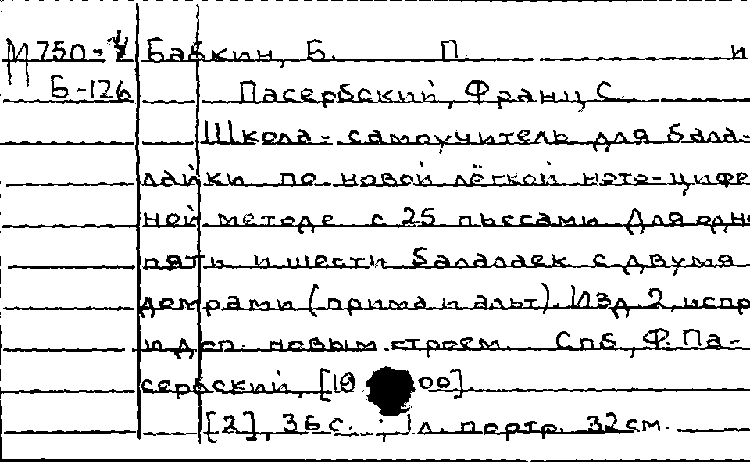 М750-4 Бабкин, Б. П. и
Б-126 Пасербский, Франц С.
Школа-самоучитель для бала-
лайки по новой лёгкой ното-цифр
ной методе с 25 пьесами для одн
пять и шести балалаек с двумя
домрами (прима и альт). Изд. 2, испр
и доп. новым строем. Спб, Ф. Па-
сербский, [19 00].
[2], 36 с. ; 1 л. портр. 32 см.